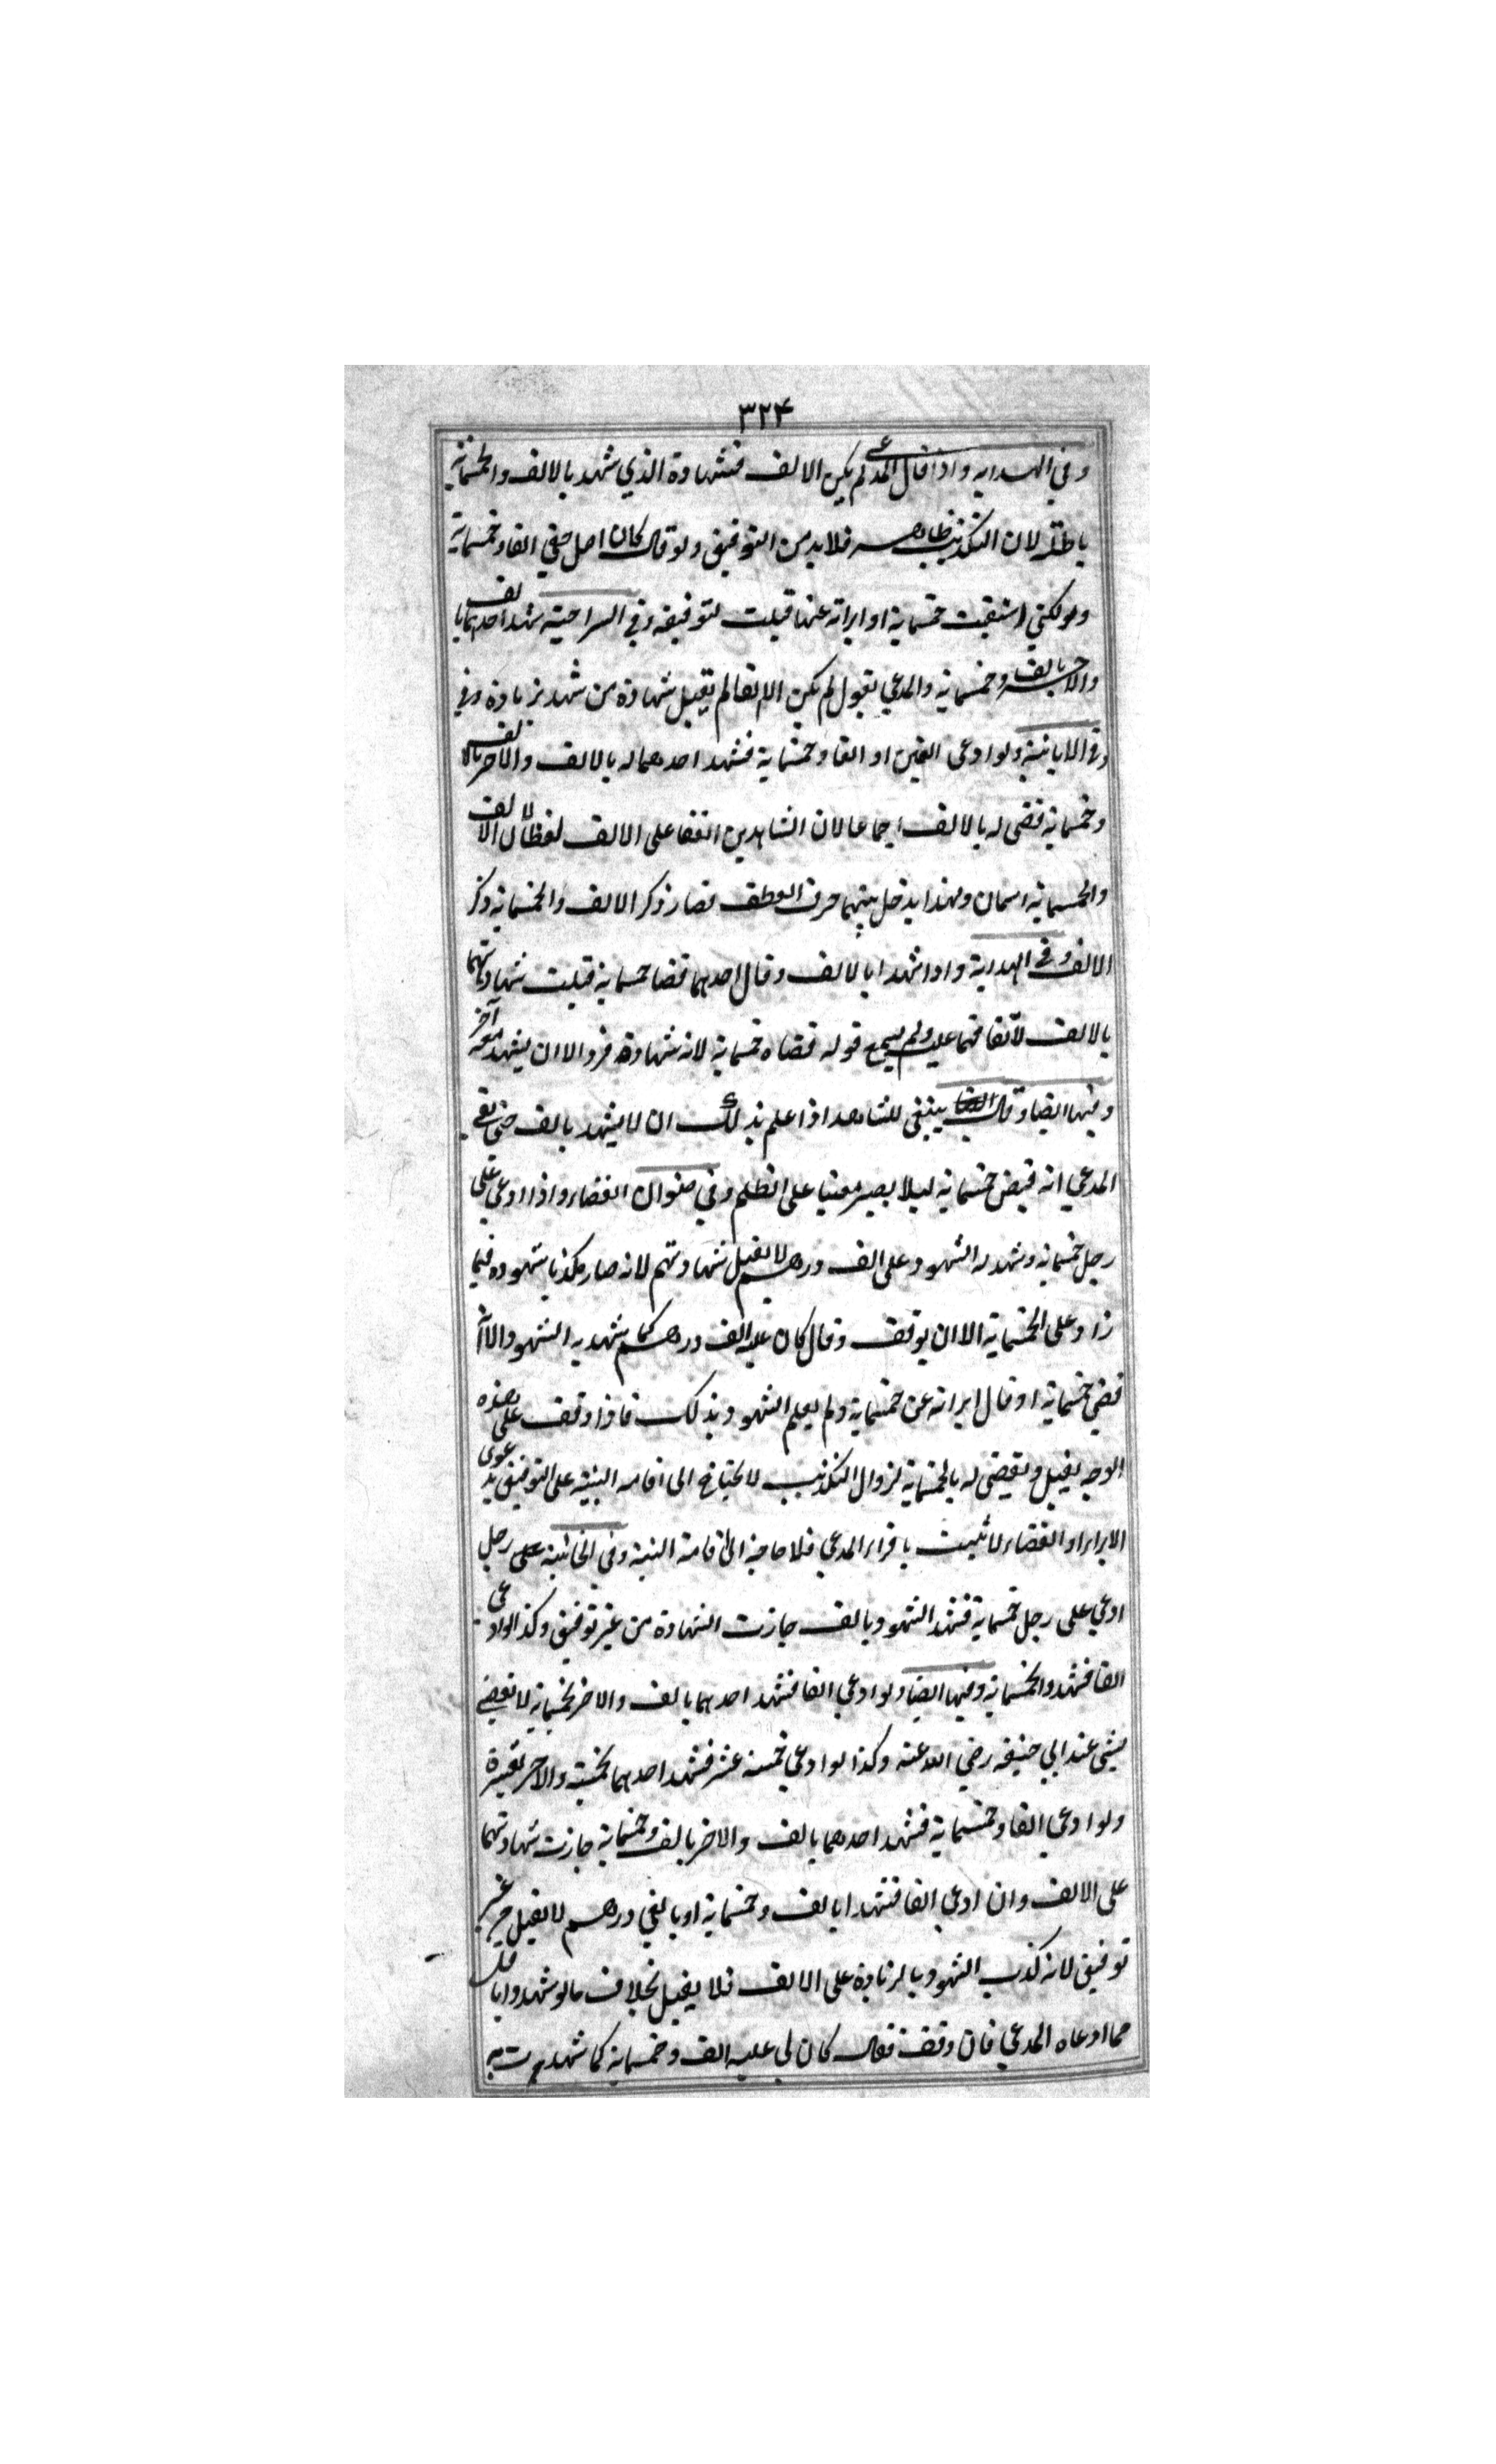 ٣٢۴
وفي الهدايه واذا قال المدعي لم يكن الا الف فشهادة الذي شهد بالالف والخمسمائة
باطلة لان التكذيب ظاهر فلا بد من التوفيق ولو قال كان اصل حقي الفا وخمسمائة
ولكني استقيت خمسماية او ابراته عنها قبلت لتوفيقه وفي السراجية شهد احدهما بالف
والاخر بالف وخمسماية والمدعي يقول لم يكن الا الفا لم يقبل شهادة من شهد بزيادة وفي
وفي ولو ادعى الفين او الفا وخمسماية فشهد احدهما له بالالف والاخر بالالف
وخمسماية قضى له بالالف اجماعا لان الشاهدين اتفقا على الالف لفظا لان الالف
والخمسماية اسمان ولهذا يدخل بينهما حرف العطف فصار ذكر الالف والخمسماية ذكر
الالف وفي الهداية واذا شهدا بالالف وقال احدهما قضا خمسماية قبلت شهادتهما
بالالف لاتفاقهما عليه ولم يسمع قوله قضاه خمسماية لانه شهادة فرد الا ان يشهد معه آخر
وفيها ايضا وقال ينبغي للشاهد اذا علم بذلك ان لا يشهد بالف حتى يقر
المدعي انه قبض خمسماية ليلا يصير معينا على الظلم وفي صنوان القضاء واذا ادعى على
رجل خمسماية وشهد له الشهود على الف درهم لا تقبل شهادتهم لانه صار مكذبا شهوده فيما
زاد على الخمسماية الا ان يوفق وقال كان عليه الف درهم كما شهد به الشهود الا انه
قضي خمسماية او قال ابراته عن خمسماية ولم يعلم الشهود بذلك فاذا وفق على هذه
الوجه يقبل ويقضى له بالخمسماية لزوال التكذيب لا يحتاج الى اقامه البينة على التوفيق بدعوى
الابراء او القضاء لما ثبت باقرار المدعي فلا حاجة الى اقامة البينة وفي الخانية على رجل
ادعي على رجل خمسماية فشهد الشهود بالف جازت الشهادة من غير توفيق وكذا لو ادعى
الفا فشهدوا بخمسماية وفيها ايضا ولو ادعى الفا فشهد احدهما بالف والاخر بخمسماية لا يقضي
بشي عند ابي حنيفه رضي الله عنه وكذا لو ادعي خمسة عشر فشهد احدهما بخمسة والاخر بعشرة
ولو ادعي الفا وخمسماية فشهد احدهما بالف والاخر بالف وخمسماية جازت شهادتهما
على الالف وان ادعي الفا فشهدا بالف وخمسماية او بالفي درهم لا تقبل من غير
توفيق لانه كذب الشهود بالزيادة على الالف فلا يقبل بخلاف ما لو شهدوا باقل
مما ادعاه المدعي فان وفق فقال كان لي عليه الف وخمسماية كما شهد به